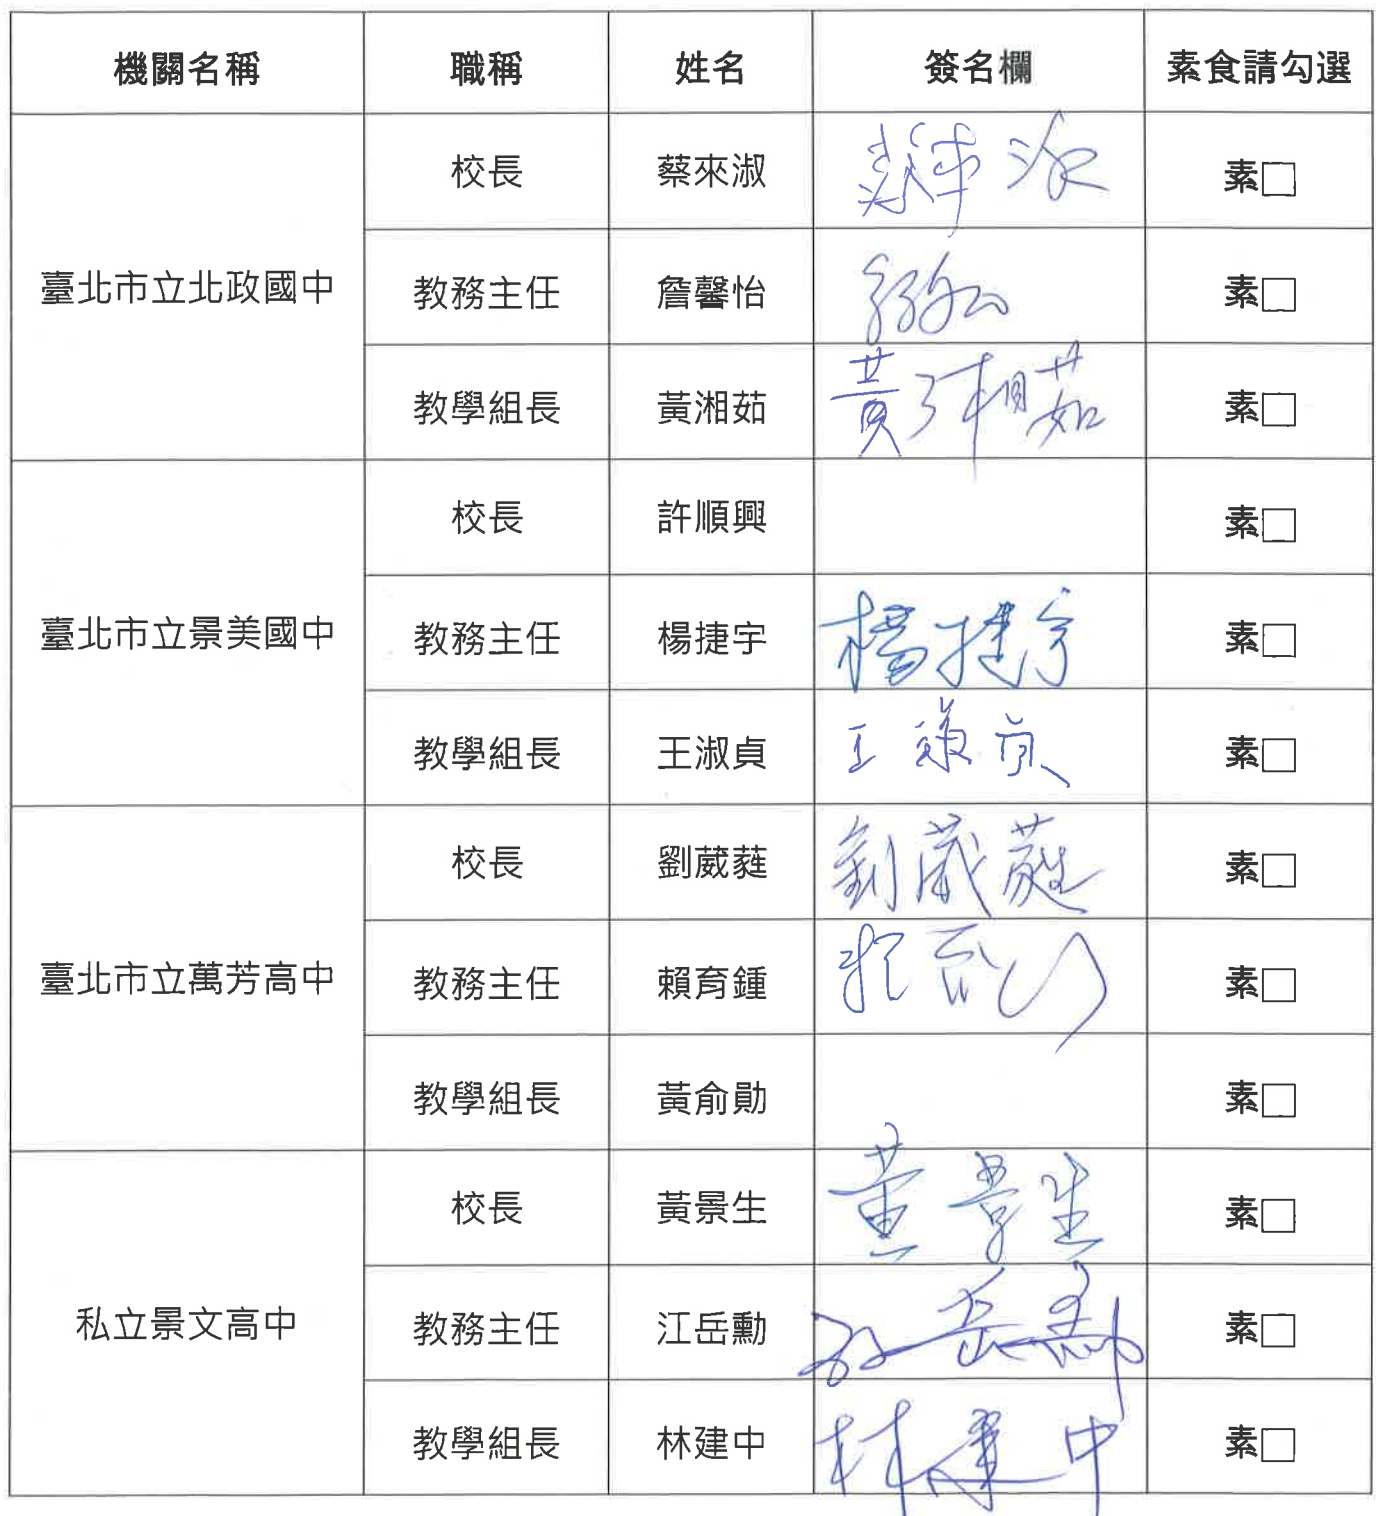 機關名稱 職稱 姓名 簽名欄 素食請勾選
臺北市立北政國中
校長 蔡來淑 素□
教務主任 詹馨怡 素□
教學組長 黃湘茹 黃湘茹 素□
臺北市立景美國中
校長 許順興 素□
教務主任 楊捷宇 楊捷宇 素□
教學組長 王淑貞 王淑貞 素□
臺北市立萬芳高中
校長 劉葳蕤 劉葳蕤 素□
教務主任 賴育鍾 素□
教學組長 黃俞勛 素□
私立景文高中
校長 黃景生 黃景生 素□
教務主任 江岳勳 江岳勳 素□
教學組長 林建中 林建中 素□